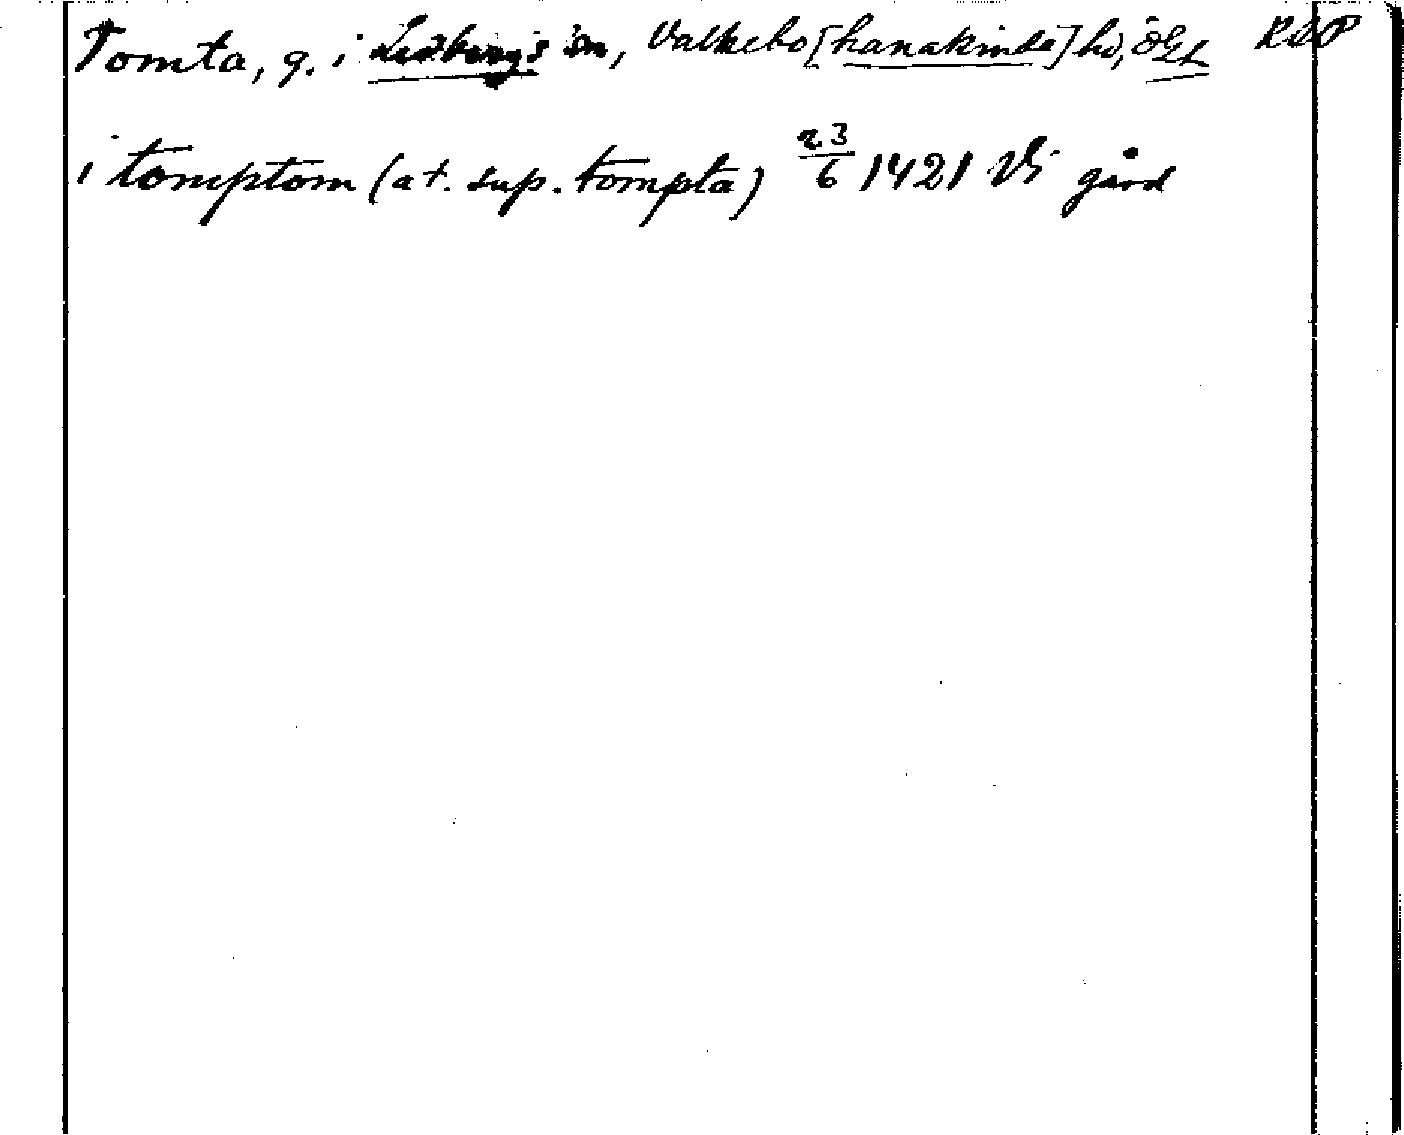 Tomta, g. i Ledbergs sn, Valkebo [hanakinda] hd, ÖGtl RAP
i tomptom (at. sup. tompta) 23/6 1421 Vi gård